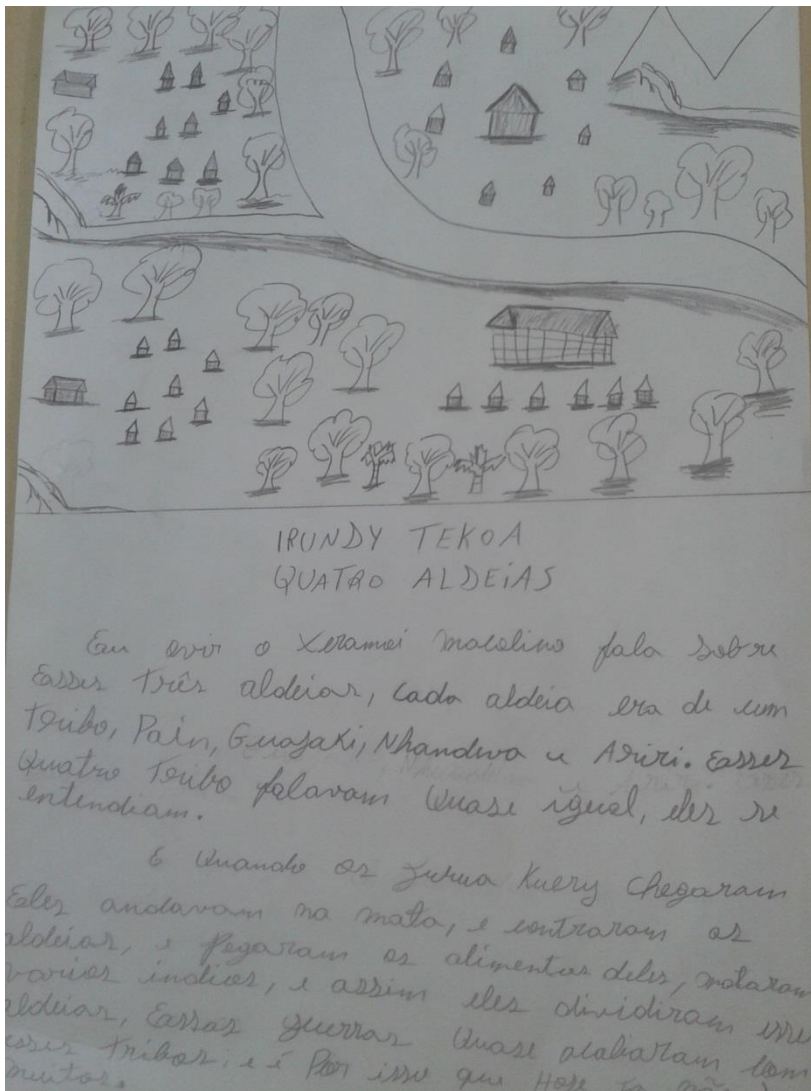 IRUNDY TEKOA
QUATRO ALDEIAS
Eu ovir o Xeramoi macolino fala sobre
Esses três aldeias, cada aldeia era de um
tribo, Pain, Guajaki, Nhandiva e Ariri. Esses
Quatro tribo falavam Quase igual, eles se
entendiam.
E Quando os jurua Kuery chegaram
Eles andavam na mata, e contraram as
aldeias, e Pegaram os alimentos deles, mataram
varios indios, e assim eles dividiram esses
aldeias, Essas guerras Quase acabaram com
esses tribos, e é Por isso que Hoje
muitos.